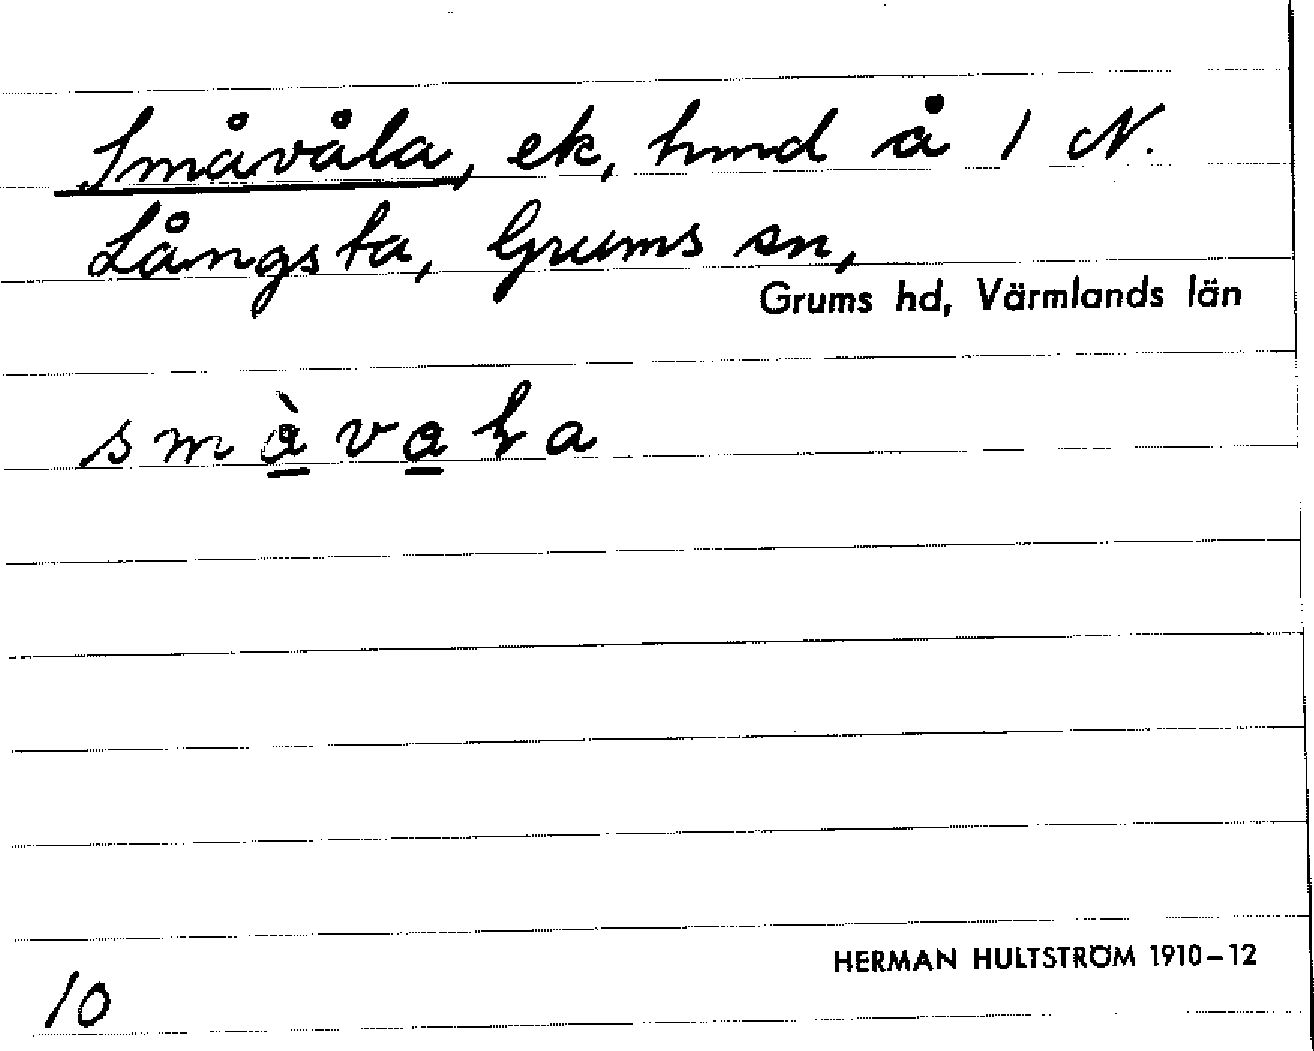 Småvåla, ek, hmd å 1 N.
Långsta, Grums sn,
Grums hd, Värmlands län
småvala
HERMAN HULTSTRÖM 1910–12
10